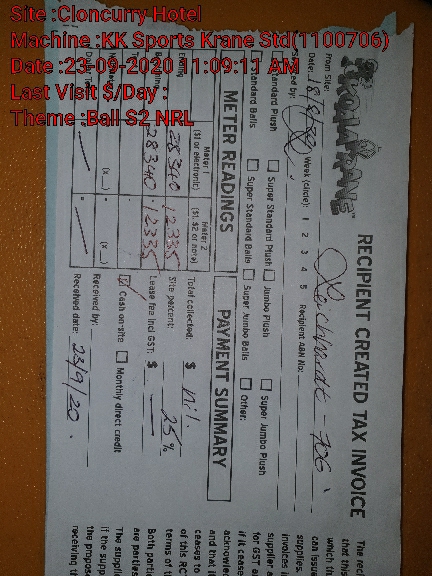 Site :Cloncurry Hotel
Machine :KK Sports Krane Std(1100706)
Date :23-09-2020 11:09:11 AM
Last Visit $/Day :
Theme :Ball S2 NRL
RECIPIENT CREATED TAX INVOICE
From Site:
Date: Week (circle): 1 2 3 4 5 Recipient ABN No:
Standard Plush Super Standard Plush Jumbo Plush Super Jumbo Plush
Standard Balls Super Standard Balls Super Jumbo Balls Other:
METER READINGS
Meter 1 Meter 2
($1 or electronic) ($1, $2 or note)
28340 12335
28340 12335
(x ) (x )
PAYMENT SUMMARY
Total collected: $ Nil.
Site percent: 25%
Lease fee incl GST: $
Cash on-site Monthly direct credit
Received by:
Received date: 23/9/20.
The
that this
which
can issue
supplies.
invoices
Supplier
for GST
if it cease
acknow
and that
ceases to
of this RC
terms of
Both parti
are parties
The suppli
if the supp
the propos
receiving